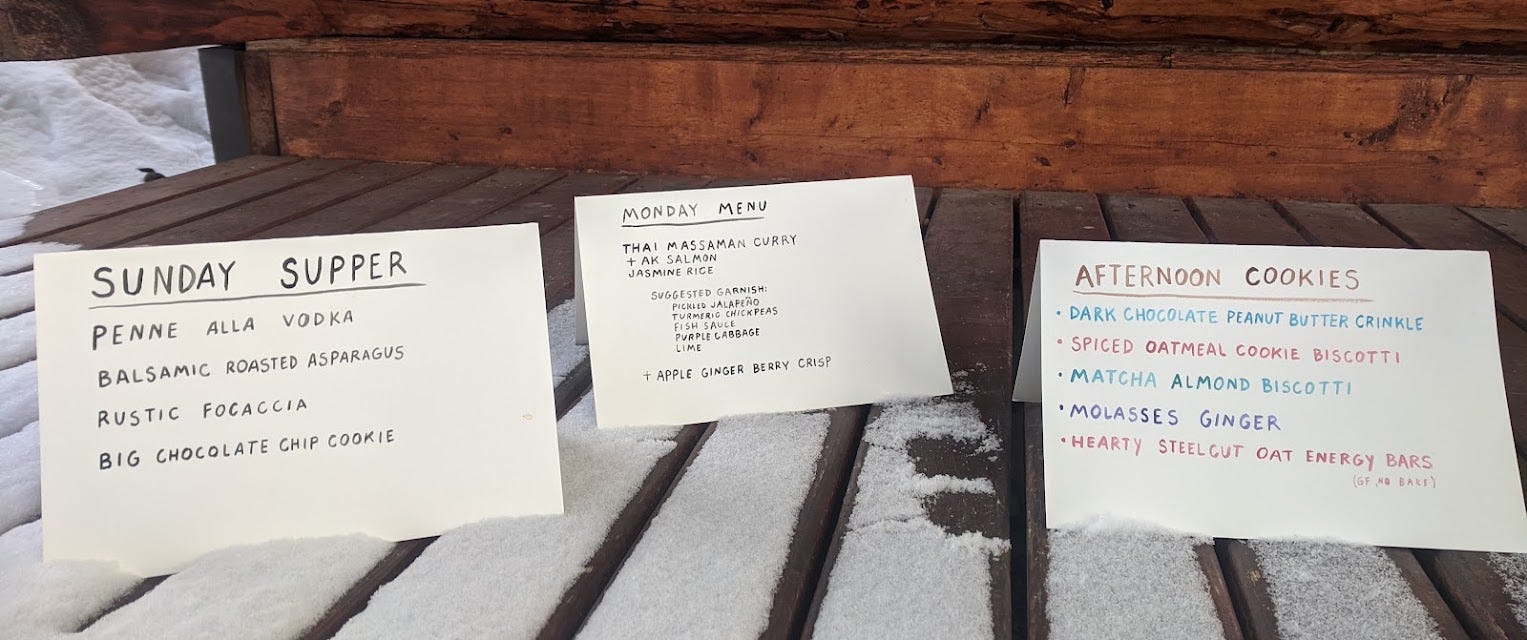 SUNDAY SUPPER
PENNE ALLA VODKA
BALSAMIC ROASTED ASPARAGUS
RUSTIC FOCACCIA
BIG CHOCOLATE CHIP COOKIE
MONDAY MENU
THAI MASSAMAN CURRY
+ AK SALMON
JASMINE RICE
SUGGESTED GARNISH:
PICKLED JALAPEÑO
TURMERIC CHICKPEAS
FISH SAUCE
PURPLE CABBAGE
LIME
+ APPLE GINGER BERRY CRISP
AFTERNOON COOKIES
• DARK CHOCOLATE PEANUT BUTTER CRINKLE
• SPICED OATMEAL COOKIE BISCOTTI
• MATCHA ALMOND BISCOTTI
• MOLASSES GINGER
• HEARTY STEELCUT OAT ENERGY BARS
(GF, NO BAKE)